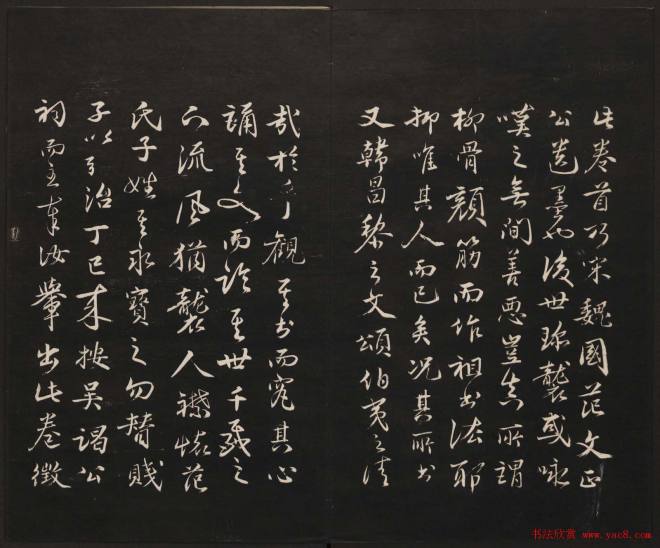 此卷首乃宋魏國范文正
公遺墨也後世珍襲或咏
嘆之無間善惡豈真所謂
柳骨顏筋而作祖書法耶
抑唯其人而已矣况其所書
又韓昌黎之文頌伯夷之清
哉於乎觀其書而究其心
誦其文而論其世千載之
下流風猶襲人襟懷范
氏子姓其永寶之勿替賤
子以弘治丁巳来按吳謁公
祠而主奉汝轝出此卷徵
书法欣赏 www.yac8.com